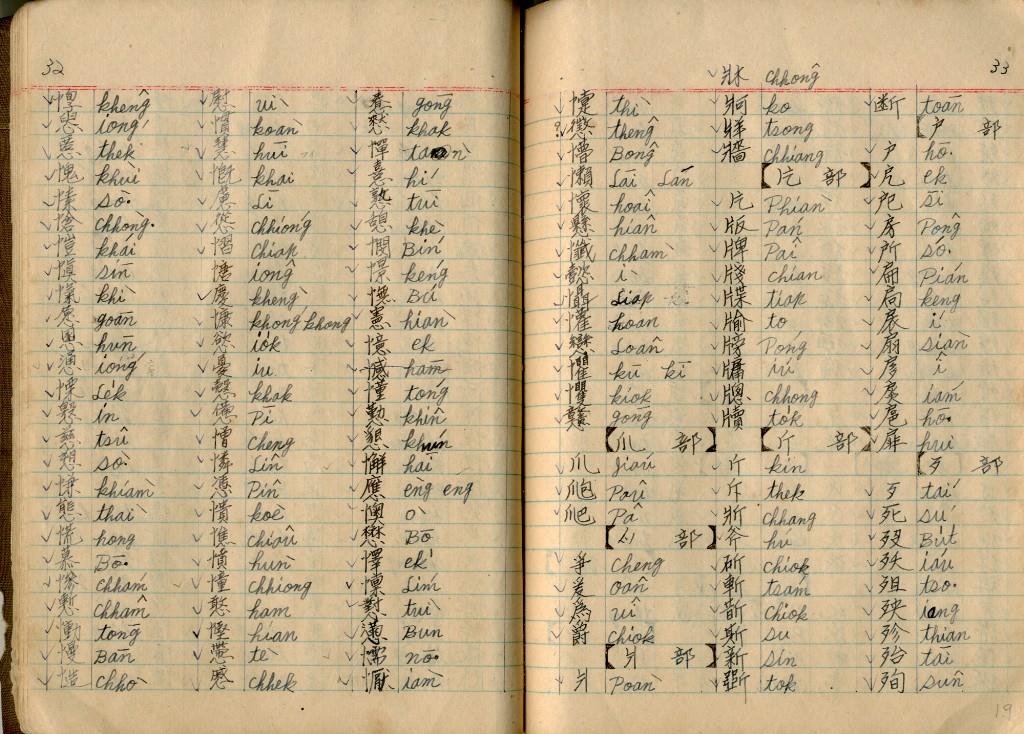 32
惸 khêng
恿 ióng
慝 thek
愧 khùi
愫 sò͘
愴 chhòng
愷 khái
慎 sīn
愾 khì
愿 goān
慁 hūn
慂 ióng
慄 le̍k
慇 in
慈 tsû
愬 sò͘
慊 khiàm
態 thài
慌 hong
慕 Bō͘
慘 chhám
慙 chhâm
慟 tōng
慢 Bān
慥 chhò
慰 ùi
慣 koàn
慧 hūi
慨 khài
慮 Lī
慫 chhióng
慴 Chiap
慵 iông
慶 khèng
慷 khong khóng
慾 io̍k
憂 iu
慤 khak
憊 Pī
憎 cheng
憐 Liân
憑 Pîn
憒 koè
憔 chiâu
憤 hùn
憧 chhiong
憨 ham
慳 hian
慸 tè
慼 chhek
憃 gōng
慤 khak
憚 tān
憙 hí
憝 tūi
憩 khè
憫 Bín
憬 kéng
憮 Bú
憲 hiàn
憶 ek
憾 hām
懂 tóng
懃 khîn
懇 khún
懈 hāi
應 eng èng
懊 ò
懋 Bō͘
懌 e̍k
懍 Lím
懟 tūi
懣 Būn
懦 nō͘
懕 iàm
33
懥 thì
懲 thêng
懵 Bông
懶 Lāi Lán
懷 hoâi
懸 hiân
懺 chhàm
懿 ì
懾 Liap
懽 hoan
戀 Loân
懼 kū kī
戄 kiok
戇 gōng
爪 部
爪 Jiáu
爮 Pau
爬 Pâ
爭 cheng
爰 oân
為 uî
爵 chiok
爿 部
爿 Poàn
牀 chhông
牁 ko
牂 tsong
牆 chhiang
片 部
片 Phiàn
版 Pán
牌 Pâi
牋 chian
牒 tiap
牏 to
牓 Póng
牖 iú
牕 chhong
牘 to̍k
斤 部
斤 kin
斥 thek
斨 chhang
斧 hú
斫 chiok
斬 tsám
斮 chiok
斯 su
新 sin
斲 tok
斷 toān
戶 部
戶 hō͘
戹 ek
戺 sī
房 Pông
所 só͘
扁 Pián
扃 keng
扆 í
扇 siàn
扅 î
扊 iám
扈 hō͘
扉 hui
歹 部
歹 tái
死 sú
歿 Bu̍t
殀 iáu
殂 tso͘
殃 iang
殄 thián
殆 tāi
殉 sūn
19